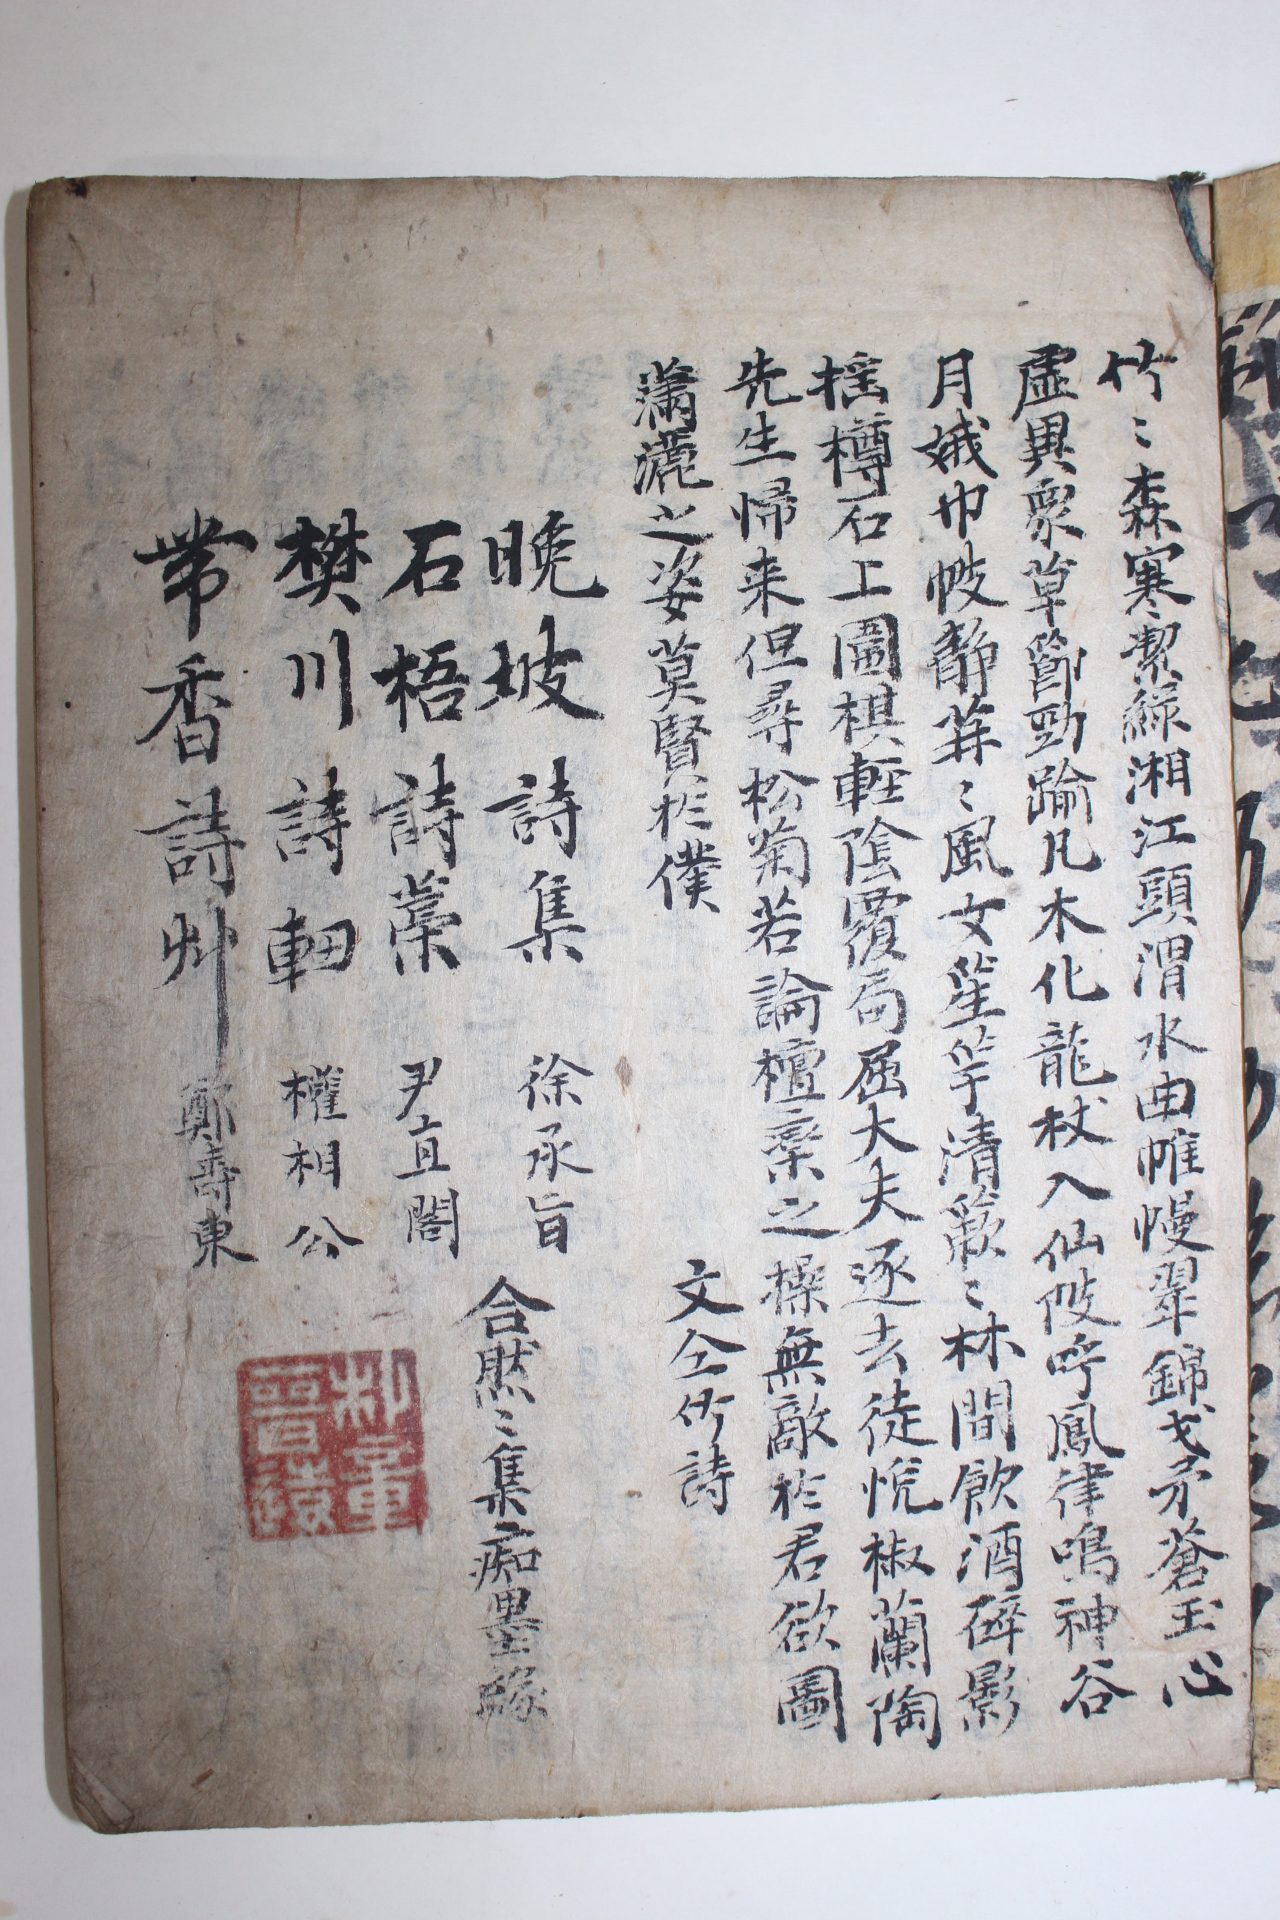 竹〻森寒潔綠湘江頭渭水曲帷幔翠錦戈矛蒼玉心
虛異衆草節勁踰凡木化龍杖入仙陂呼鳳律鳴神谷
月娥巾帔靜苒〻風女笙竽清簌〻林間飮酒碎影
搖樽石上圍棋輕陰覆局屈大夫逐去徒悅椒蘭陶
先生帰来但尋松菊若論檀欒之操無敵於君欲圖
瀟灑之姿莫賢於僕
文仝竹詩
晩坡詩集 徐承旨
石梧詩藁 尹直閣
樊川詩軔 權相公
帶香詩艸 鄭壽東
合然〻集痴墨緣